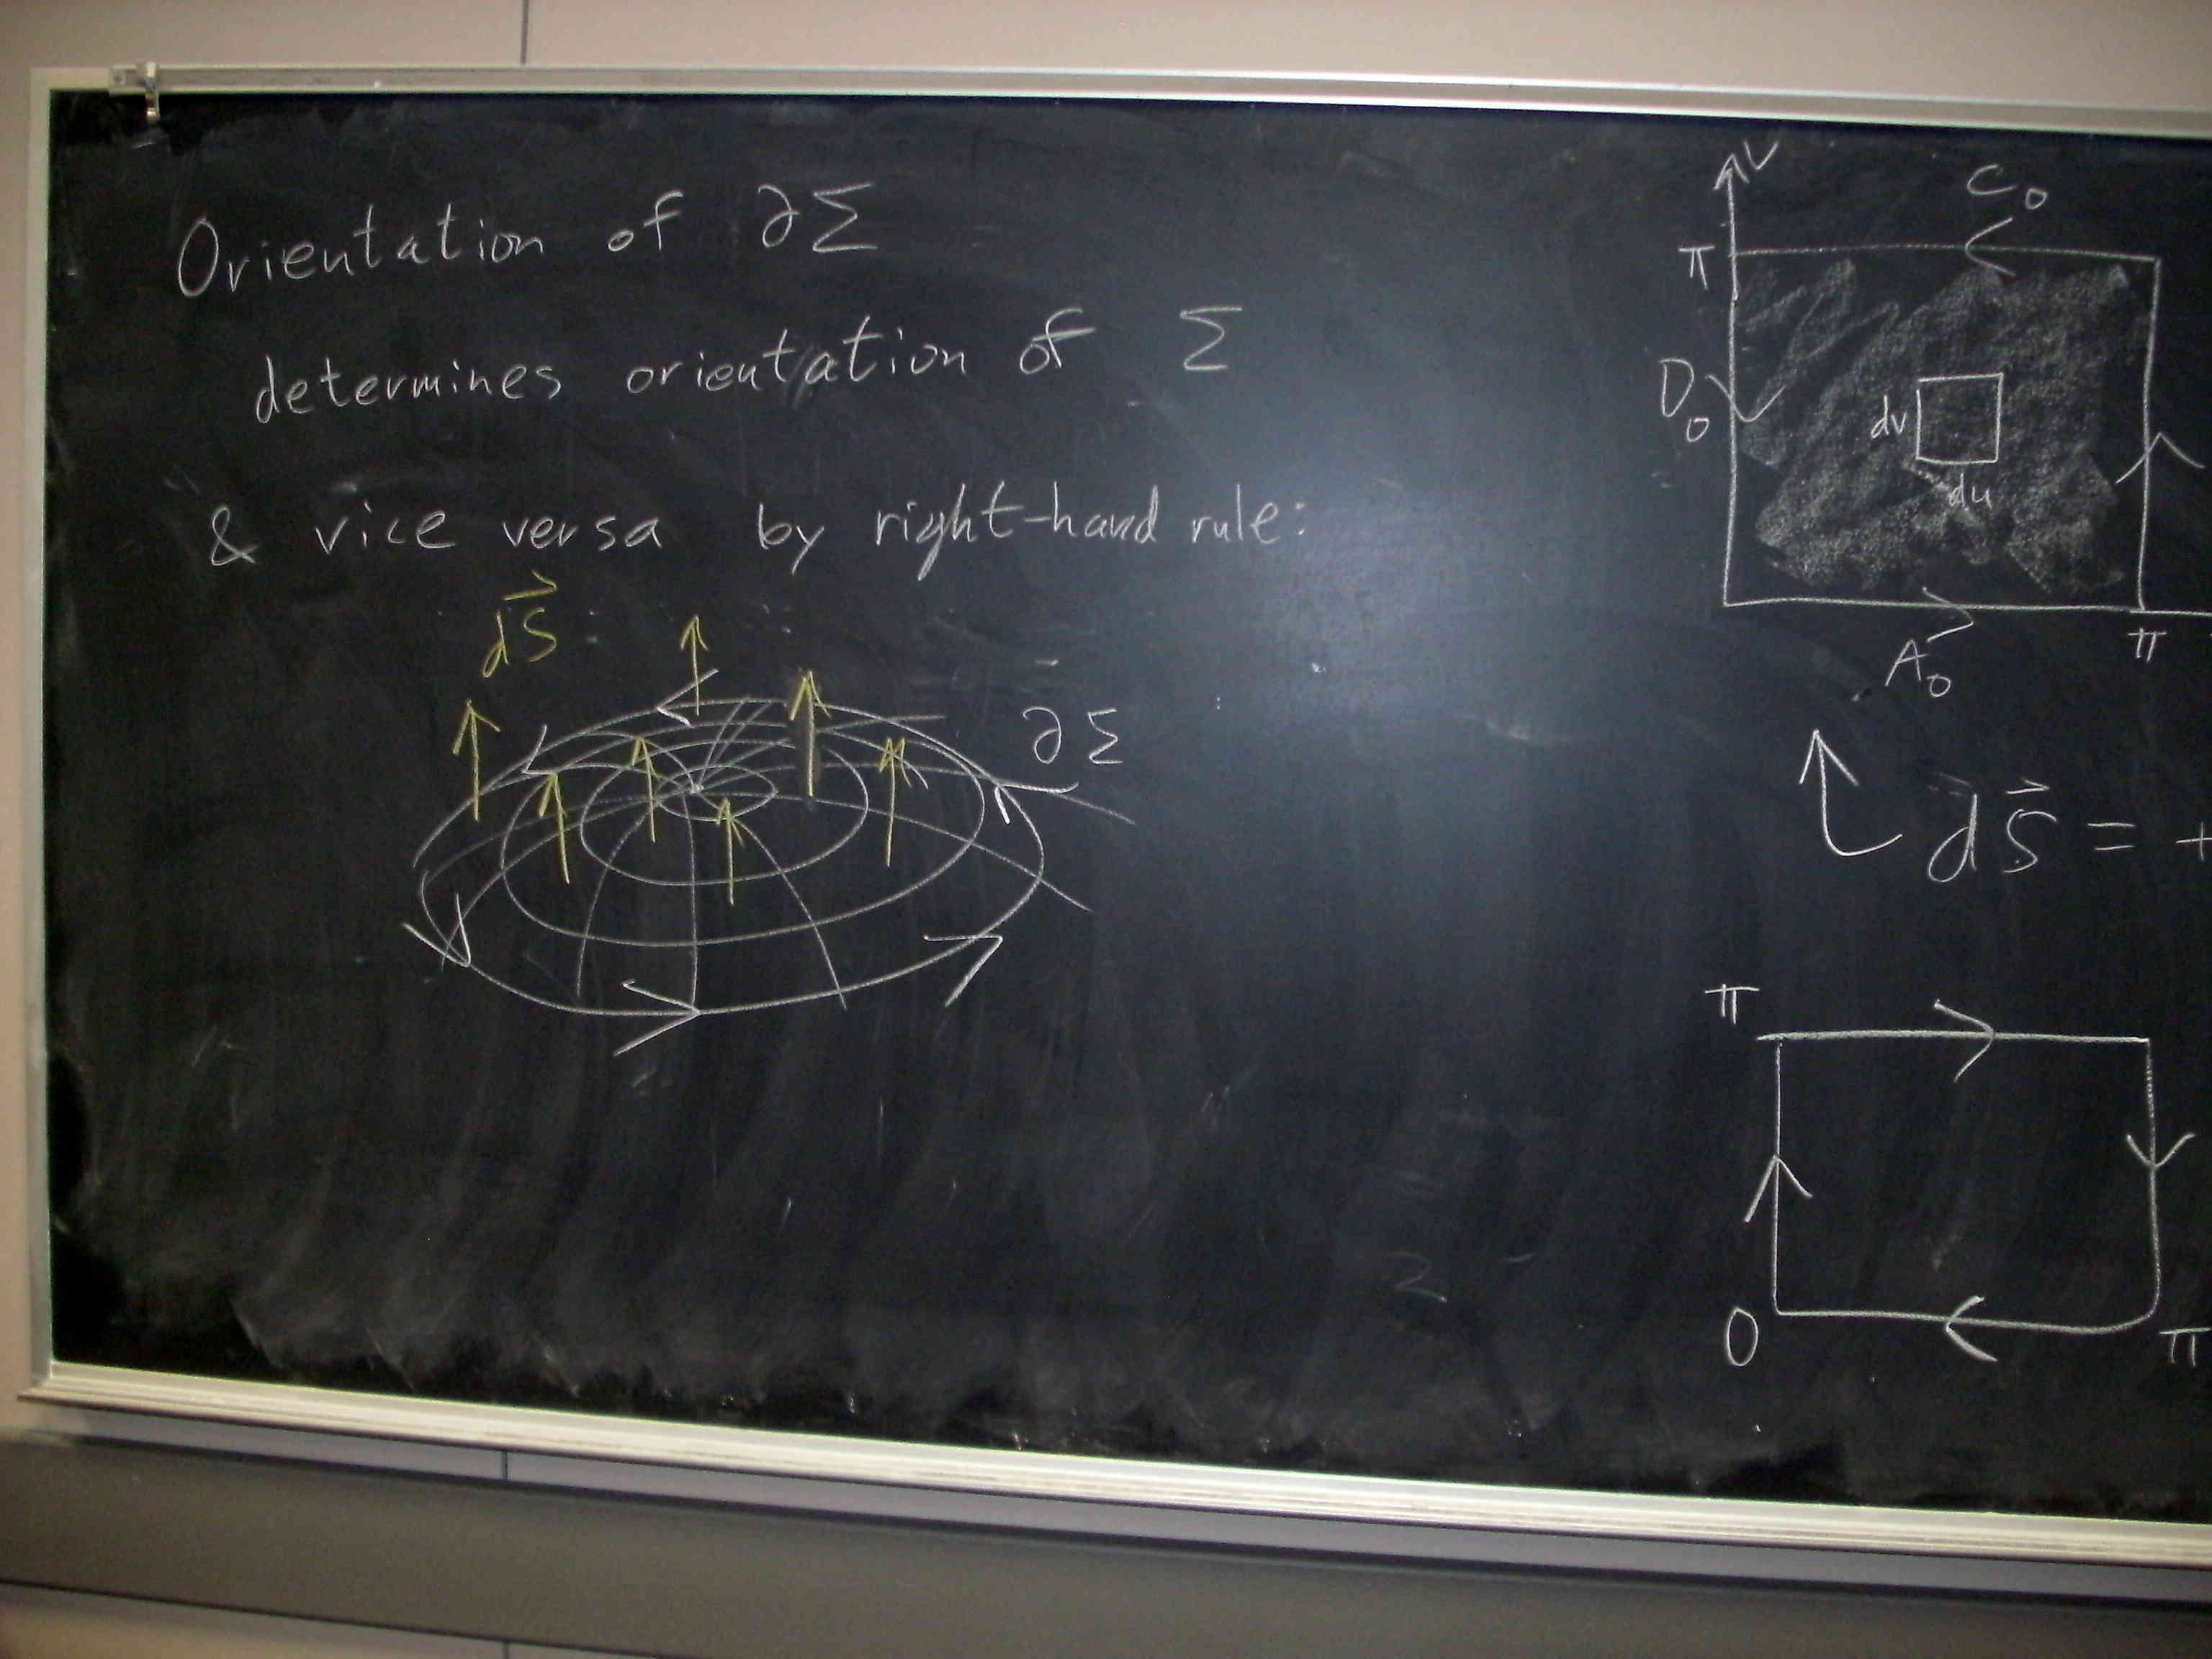 Orientation of ∂Σ
determines orientation of Σ
& vice versa by right-hand rule:
dS⃗:
∂Σ
v
C₀
π
D₀
dv
du
A₀
π
dS⃗ = +
π
0
π